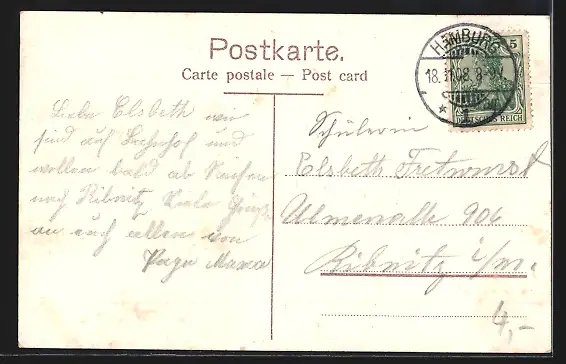 Postkarte.
Carte postale — Post card
HAMBURG
18.11.08. 8-9V
* 1
5
DEUTSCHES REICH
Liebe Elsbeth wir
sind auf Bahnhof und
wollen bald ab
nach Ribnitz Viele Grüße
an euch allen von
Papa Mama
Schülerin
Elsbeth
Ulmenalle 906
Ribnitz i/m.
4,-